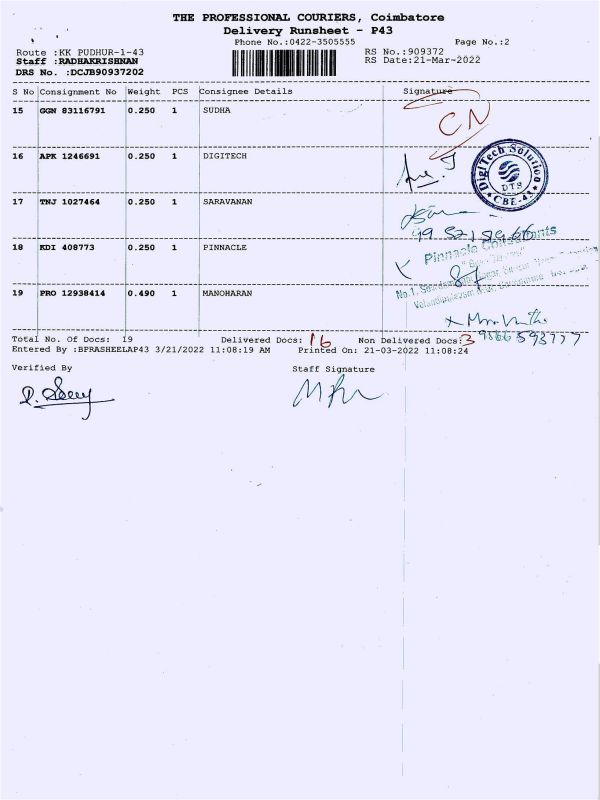 THE PROFESSIONAL COURIERS, Coimbatore
Delivery Runsheet - P43
Phone No.:0422-3505555 Page No.:2
Route :KK PUDHUR-1-43 RS No.:909372
Staff :RADHAKRISHNAN RS Date:21-Mar-2022
DRS No. :DCJB90937202
S No Consignment No Weight PCS Consignee Details Signature
15 GGN 83116791 0.250 1 SUDHA
CN
16 APK 1246691 0.250 1 DIGITECH
DigiTech Solution
DTS
CBE-43
17 TNJ 1027464 0.250 1 SARAVANAN
18 KDI 408773 0.250 1 PINNACLE
Pinnacle Consultants
19 PRO 12938414 0.490 1 MANOHARAN
Total No. Of Docs: 19 Delivered Docs: 16 Non Delivered Docs:3
Entered By :BPRASHEELAP43 3/21/2022 11:08:19 AM Printed On: 21-03-2022 11:08:24
Verified By Staff Signature